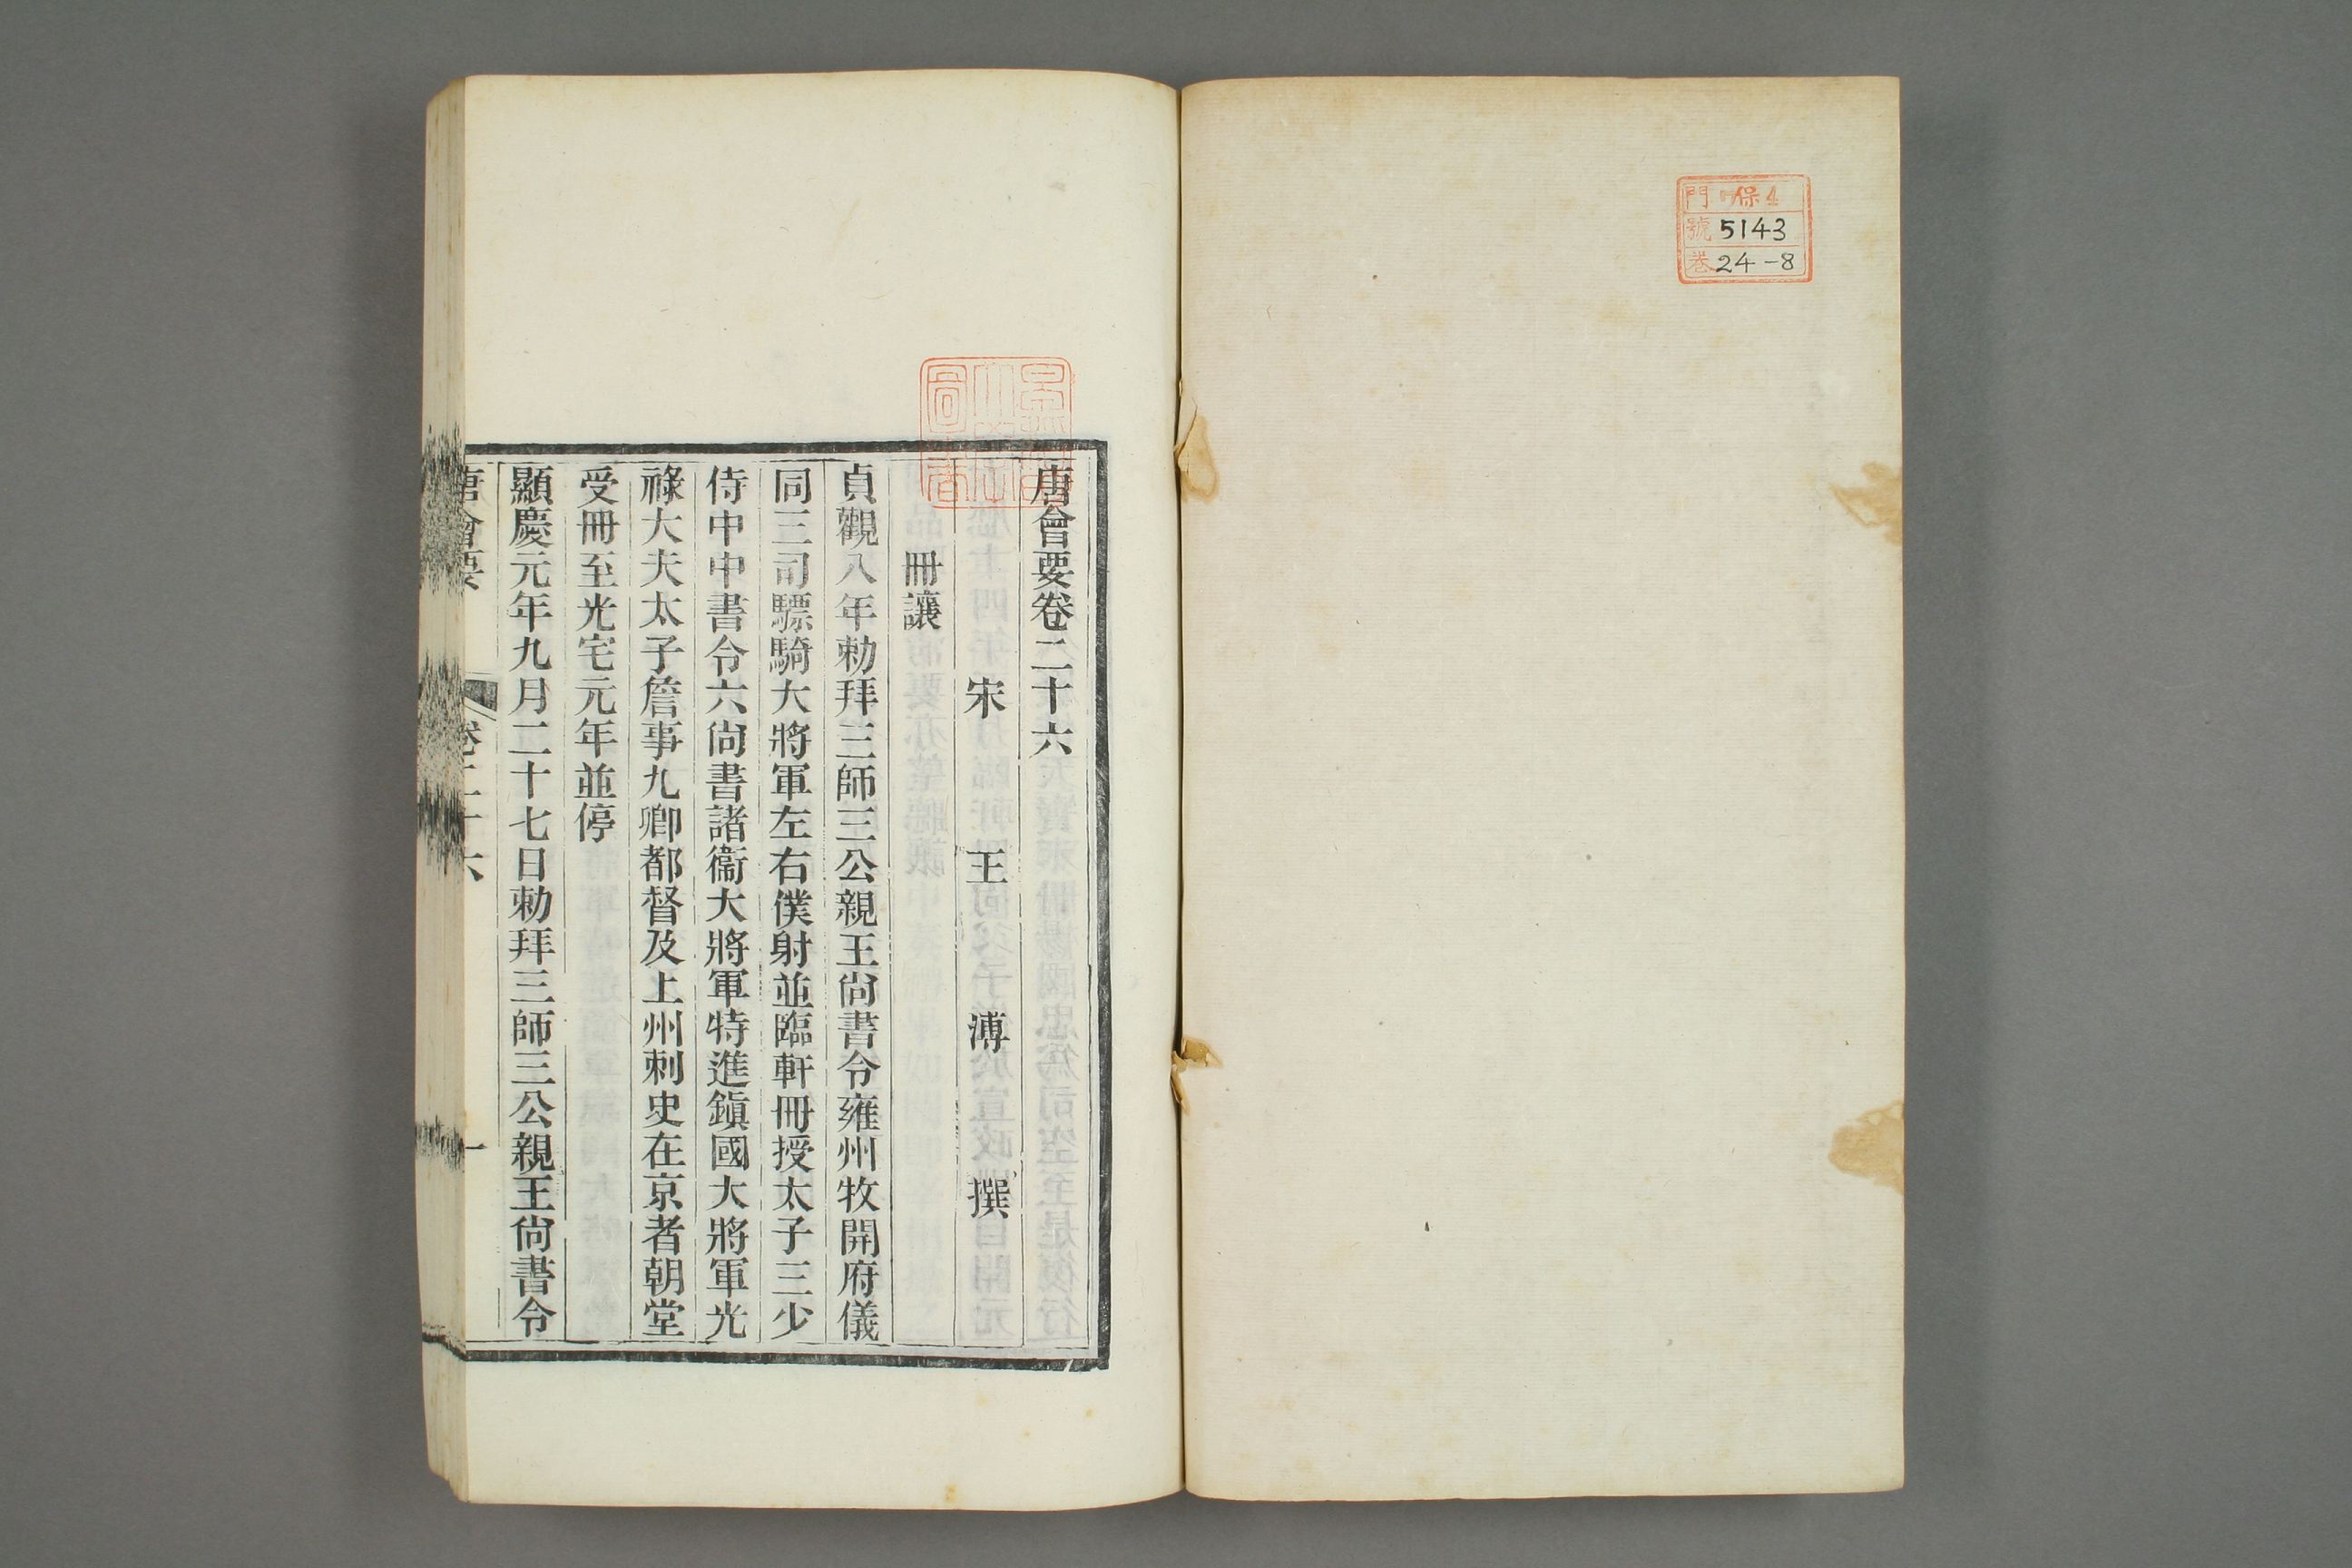 門 保4
號 5143
卷 24-8
唐會要卷二十六
宋 王 溥 撰
冊讓
貞觀八年勅拜三師三公親王尙書令雍州牧開府儀
同三司驃騎大將軍左右僕射並臨軒冊授太子三少
侍中中書令六尙書諸衞大將軍特進鎭國大將軍光
祿大夫太子詹事九卿都督及上州刺史在京者朝堂
受冊至光宅元年並停
顯慶元年九月二十七日勅拜三師三公親王尙書令
唐會要 卷二十六 一